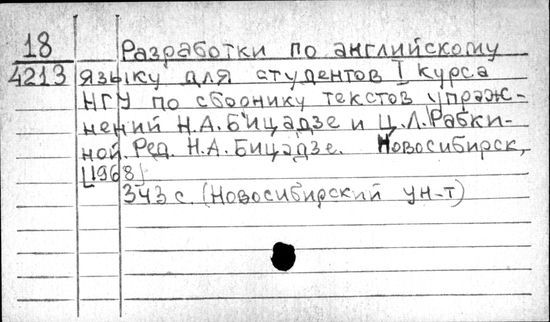 18 Разработки по английскому
4213 языку для студентов I курса
НГУ по сборнику текстов упраж-
нений Н.А.Бицадзе и Ц.Л.Рабки-
ной. Ред. Н.А.Бицадзе. Новосибирск,
[1968]
343 с. (Новосибирский ун-т)